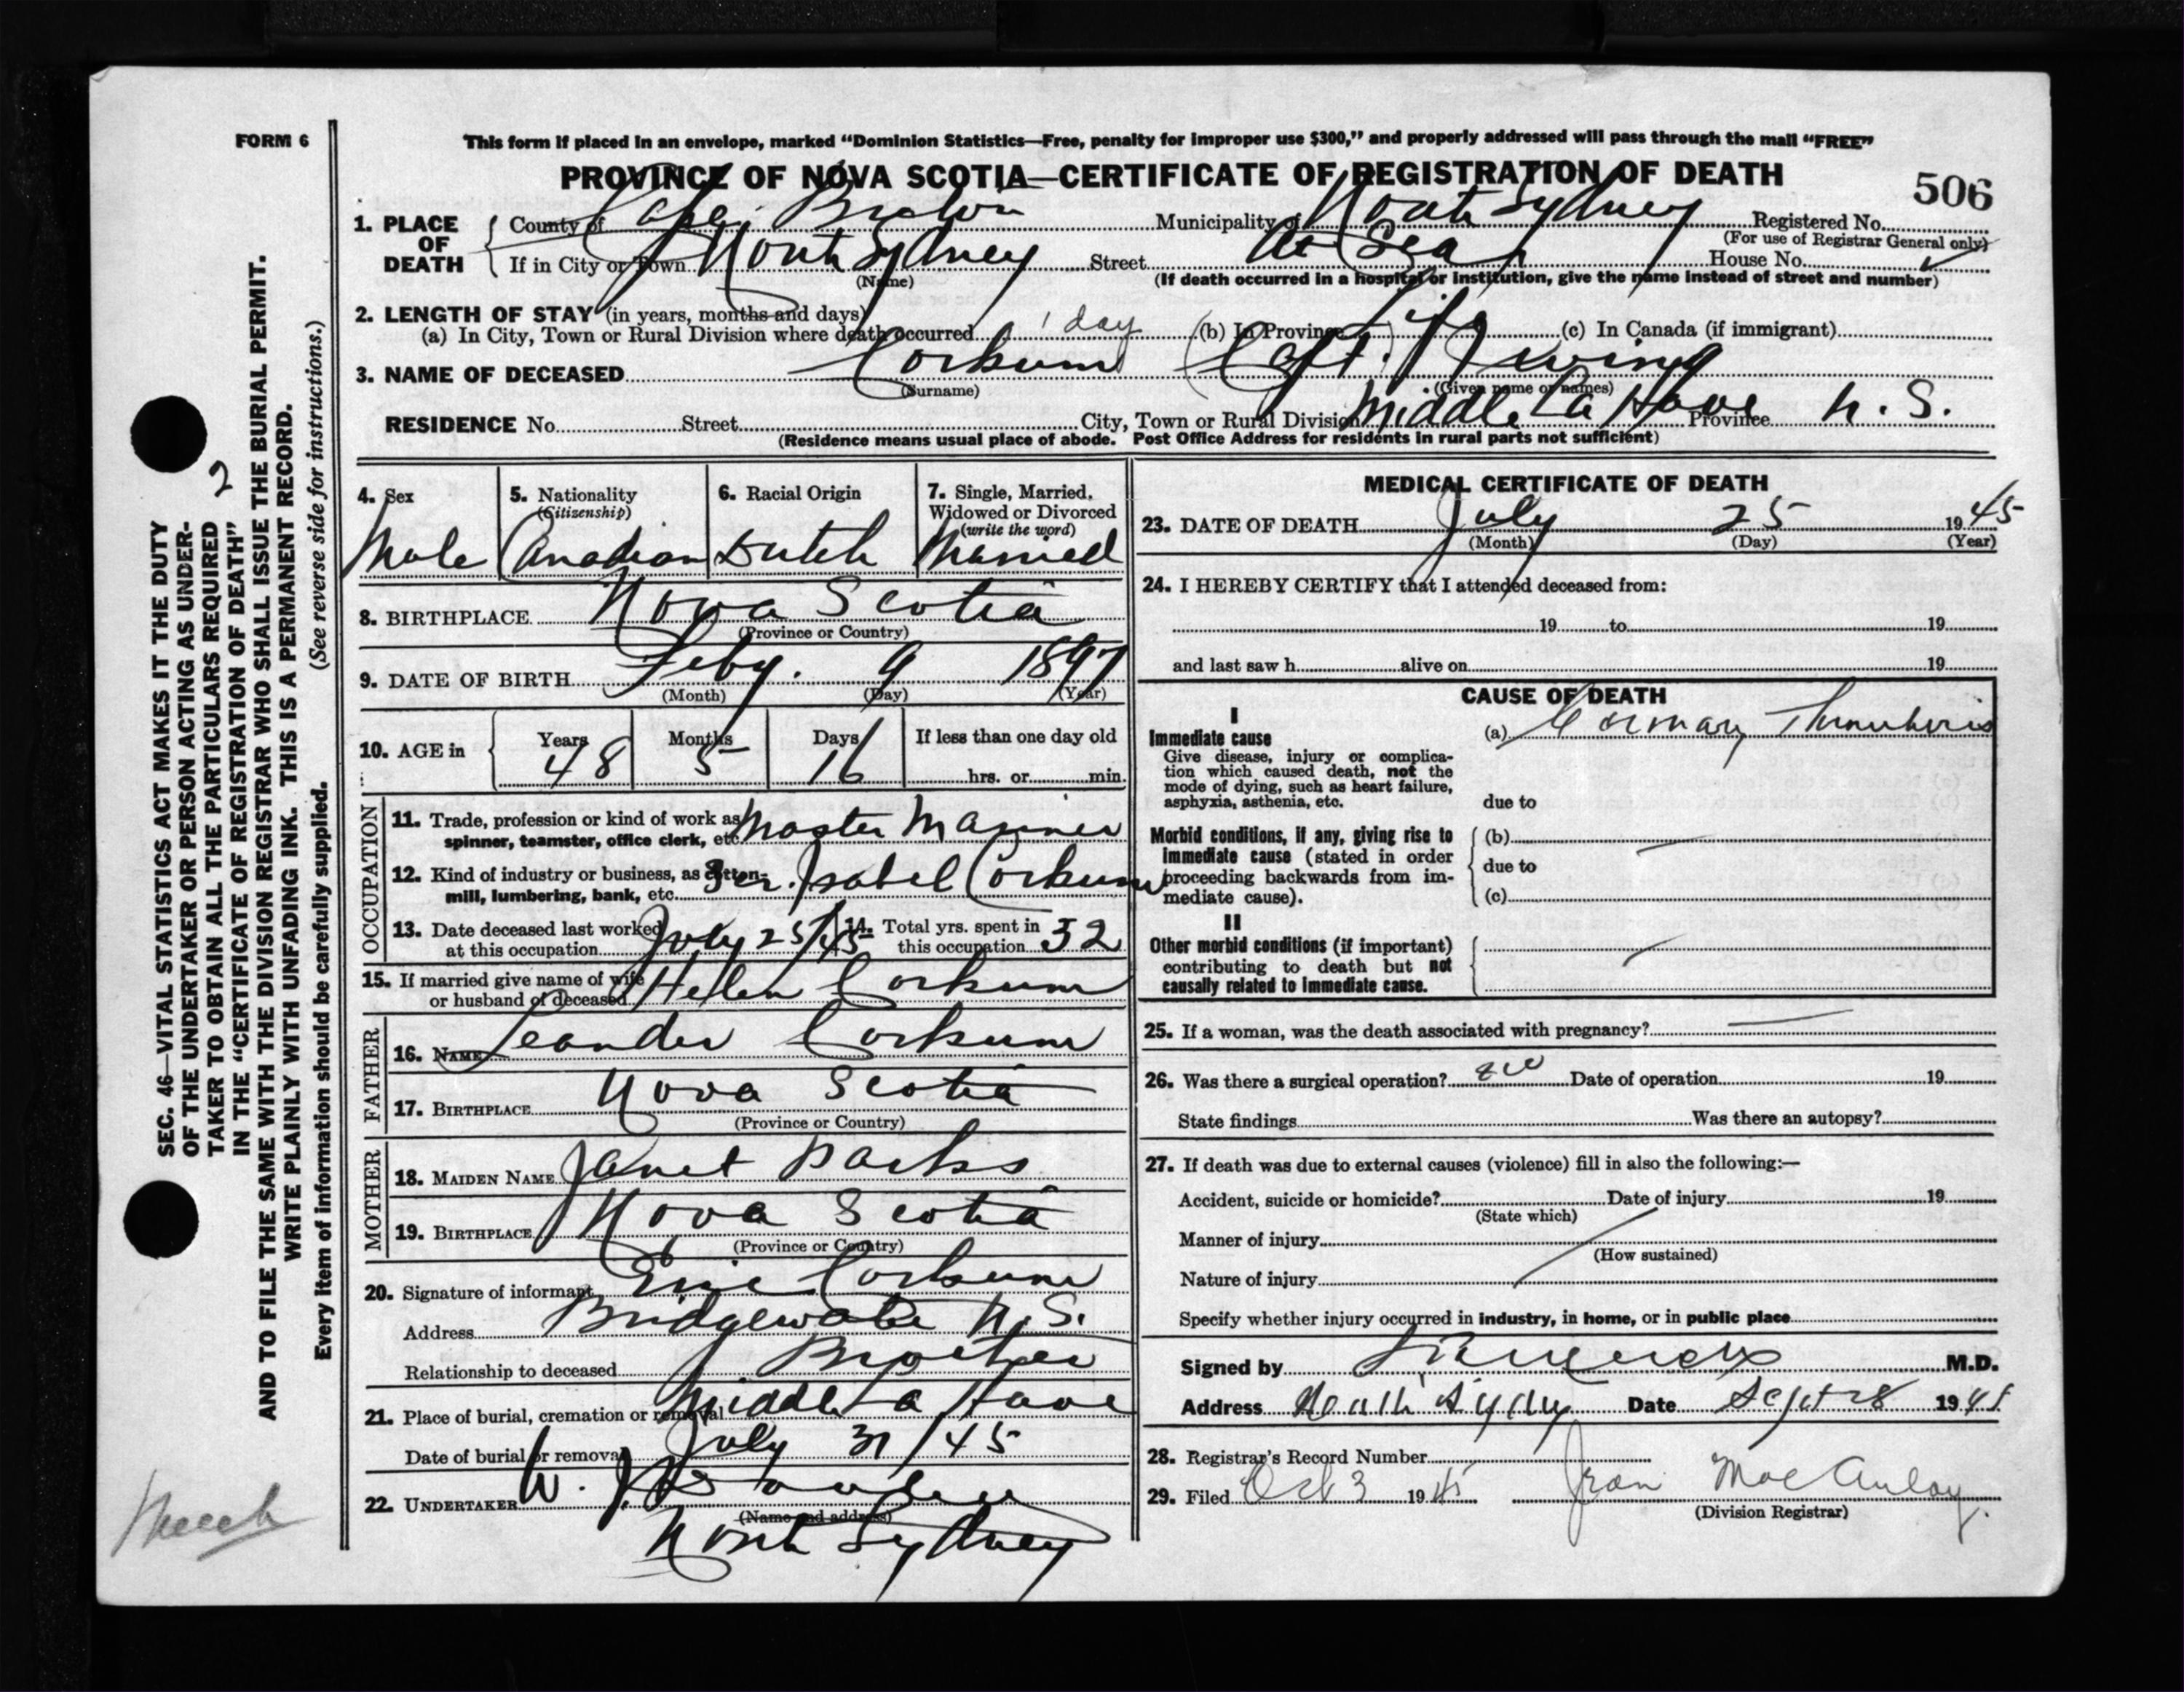 FORM 6
This form if placed in an envelope, marked "Dominion Statistics—Free, penalty for improper use $300," and properly addressed will pass through the mail "FREE"
PROVINCE OF NOVA SCOTIA—CERTIFICATE OF REGISTRATION OF DEATH
506
1. PLACE OF DEATH County of Cape Breton Municipality of North Sydney Registered No.
(For use of Registrar General only)
If in City or Town North Sydney Street At Sea House No.
(Name) (If death occurred in a hospital or institution, give the name instead of street and number)
2. LENGTH OF STAY (in years, months and days)
(a) In City, Town or Rural Division where death occurred 1 day (b) In Province Life (c) In Canada (if immigrant)
3. NAME OF DECEASED Corkum (Capt.) Irving
(Surname) (Given name or names)
RESIDENCE No. Street City, Town or Rural Division Middle La Have Province N. S.
(Residence means usual place of abode. Post Office Address for residents in rural parts not sufficient)
SEC. 46—VITAL STATISTICS ACT MAKES IT THE DUTY
OF THE UNDERTAKER OR PERSON ACTING AS UNDER-
TAKER TO OBTAIN ALL THE PARTICULARS REQUIRED 2
IN THE "CERTIFICATE OF REGISTRATION OF DEATH"
AND TO FILE THE SAME WITH THE DIVISION REGISTRAR WHO SHALL ISSUE THE BURIAL PERMIT.
WRITE PLAINLY WITH UNFADING INK. THIS IS A PERMANENT RECORD.
Every item of information should be carefully supplied. (See reverse side for instructions.)
4. Sex 5. Nationality 6. Racial Origin 7. Single, Married,
(Citizenship) Widowed or Divorced
(write the word)
Male Canadian Dutch Married
8. BIRTHPLACE Nova Scotia
(Province or Country)
9. DATE OF BIRTH Feby. 9 1897
(Month) (Day) (Year)
10. AGE in Years Months Days If less than one day old
48 5 16 hrs. or min.
OCCUPATION
11. Trade, profession or kind of work as Master Mariner
spinner, teamster, office clerk, etc.
12. Kind of industry or business, as cotton- Scr. Isabel Corkum
mill, lumbering, bank, etc.
13. Date deceased last worked 14. Total yrs. spent in
at this occupation July 25/45 this occupation 32
15. If married give name of wife
or husband of deceased Hellen Corkum
FATHER
16. NAME Leander Corkum
17. BIRTHPLACE Nova Scotia
(Province or Country)
MOTHER
18. MAIDEN NAME Janet Parks
19. BIRTHPLACE Nova Scotia
(Province or Country)
20. Signature of informant Eric Corkum
Address Bridgewater N.S.
Relationship to deceased Brother
21. Place of burial, cremation or removal Middle La Have
Date of burial or removal July 31/45
22. UNDERTAKER W. J.
(Name and address)
North Sydney
MEDICAL CERTIFICATE OF DEATH
23. DATE OF DEATH July 25 1945
(Month) (Day) (Year)
24. I HEREBY CERTIFY that I attended deceased from:
19 to 19
and last saw h alive on 19
CAUSE OF DEATH
I
Immediate cause (a) Coronary Thrombosis
Give disease, injury or complica-
tion which caused death, not the
mode of dying, such as heart failure,
asphyxia, asthenia, etc. due to
Morbid conditions, if any, giving rise to (b)
immediate cause (stated in order due to
proceeding backwards from im-
mediate cause). (c)
II
Other morbid conditions (if important)
contributing to death but not
causally related to immediate cause.
25. If a woman, was the death associated with pregnancy?
26. Was there a surgical operation? no Date of operation 19
State findings Was there an autopsy?
27. If death was due to external causes (violence) fill in also the following:—
Accident, suicide or homicide? Date of injury 19
(State which)
Manner of injury
(How sustained)
Nature of injury
Specify whether injury occurred in industry, in home, or in public place
Signed by M.D.
Address North Sydney Date Sept 28 1945
28. Registrar's Record Number
29. Filed Oct 3 1945 Jean MacAulay.
(Division Registrar)